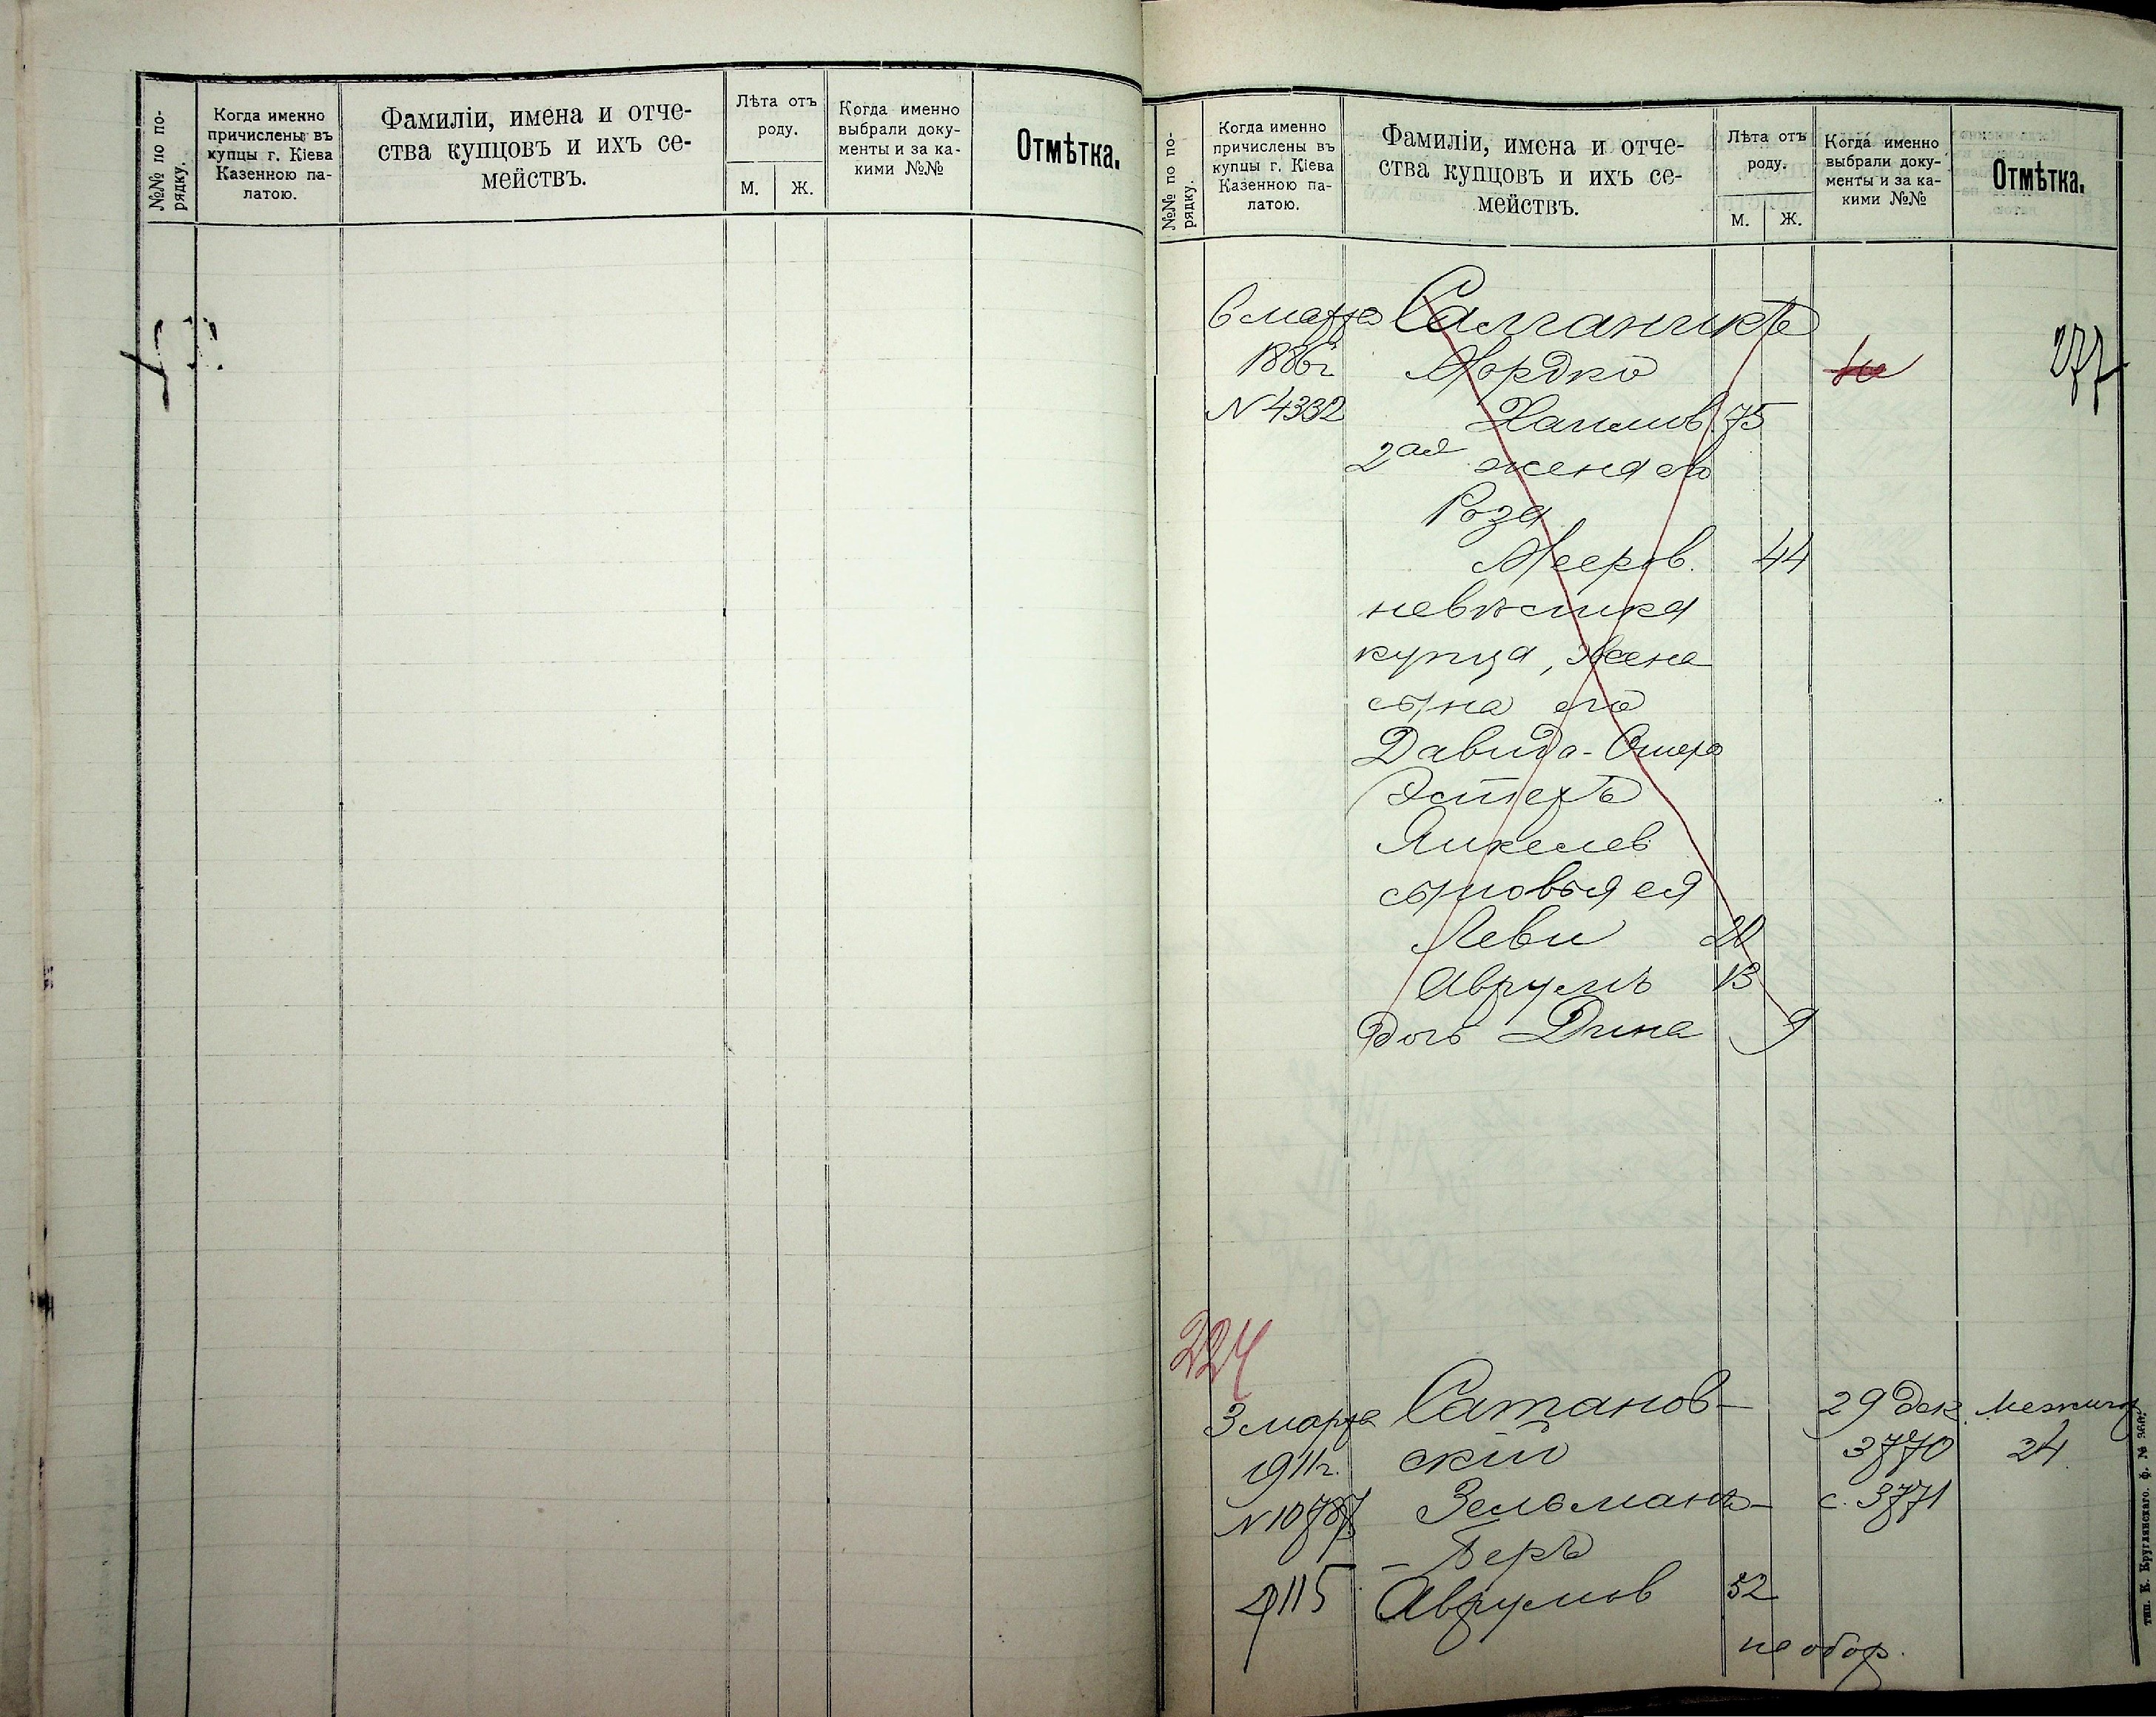 №№ по по-
рядку.
Когда именно
причислены въ
купцы г. Кіева
Казенною па-
латою.
Фамиліи, имена и отче-
ства купцовъ и ихъ се-
мействъ.
Лѣта отъ
роду.
М. Ж.
Когда именно
выбрали доку-
менты и за ка-
кими №№
Отмѣтка.
№№ по по-
рядку.
Когда именно
причислены въ
купцы г. Кіева
Казенною па-
латою.
Фамиліи, имена и отче-
ства купцовъ и ихъ се-
мействъ.
Лѣта отъ
роду.
М. Ж.
Когда именно
выбрали доку-
менты и за ка-
кими №№
Отмѣтка.
6 марта Салганикъ
1886г. Мордко 277
N 4332 Хаимов. 75
2ая жена его
Роза
Мееров. 44
невѣстка
купца, жена
сына его
Давида-Ошера
Эстеръ
Янкелев
сыновья ея
Леви 20
Аврумъ 13
дочь Дина 9
224
3 марта Сатанов- 29 дек.
1911г. скій 3770 24
N 10787 Зельманъ- с. 3771
- Беръ
Аврумов 52
не обор.
тип. К. Круглянскаго. ф. №